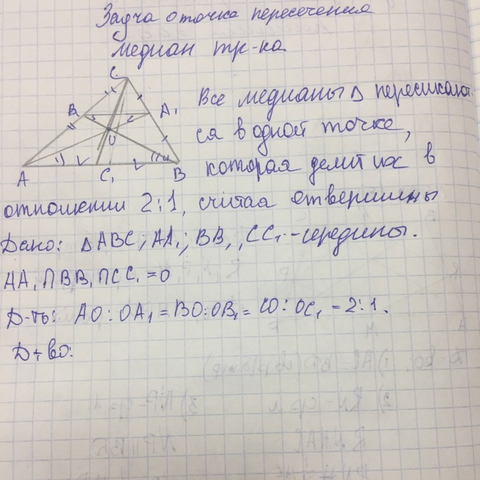 Задча о точке пересечения
медиан тр-ка.
C
B₁ A₁
O
A C₁ B
Все медианы Δ пересикают
ся в одной точке,
которая делит их в
отношении 2:1, считая от вершины
Дано: ΔABC; AA₁; BB₁, CC₁ - середины.
AA₁∩BB₁∩CC₁=O
Д-ть: AO:OA₁=BO:OB₁=CO:OC₁=2:1.
Д+во: